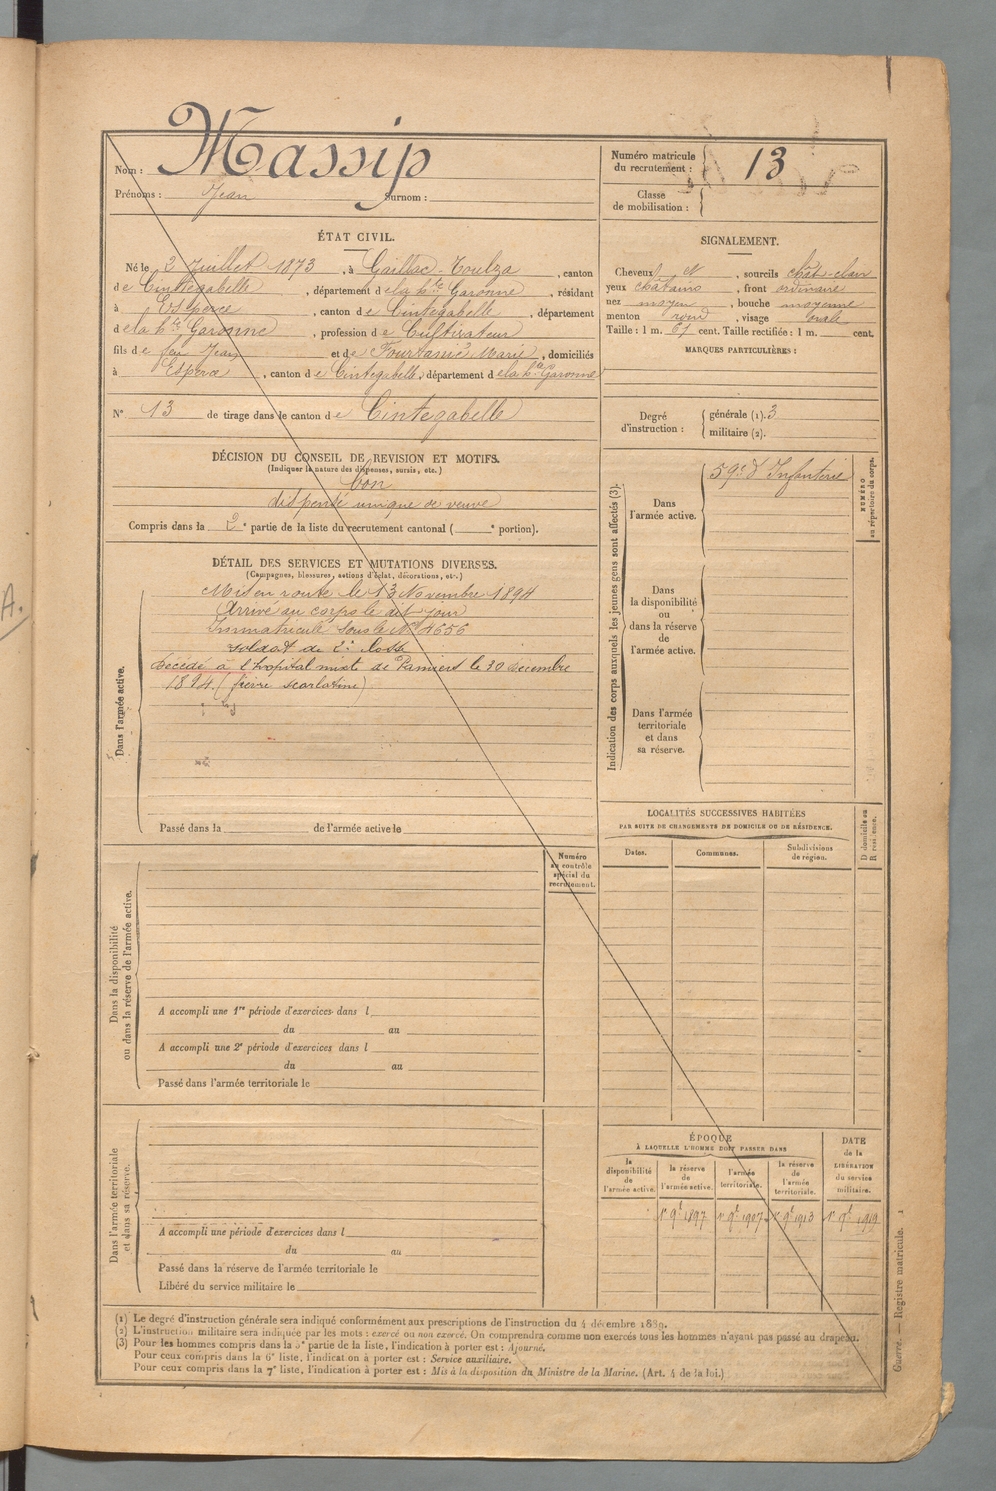 Nom : Massip
Prénoms : Jean Surnom :
Numéro matricule du recrutement : 13
Classe de mobilisation :
ÉTAT CIVIL.
Né le 2 Juillet 1873, à Gaillac-Toulza, canton
de Cintegabelle, département de la hte Garonne, résidant
à Esperce, canton de Cintegabelle, département
de la hte Garonne, profession de Cultivateur
fils de feu Jean et de Marie, domiciliés
à Esperce, canton de Cintegabelle, département de la hte Garonne
N° 13 de tirage dans le canton de Cintegabelle
SIGNALEMENT.
Cheveux N, sourcils chât-clair
yeux châtains, front ordinaire
nez moyen, bouche moyenne
menton rond, visage ovale
Taille : 1 m. 67 cent. Taille rectifiée : 1 m. cent.
MARQUES PARTICULIÈRES :
Degré d'instruction : générale (1). 3
militaire (2).
DÉCISION DU CONSEIL DE REVISION ET MOTIFS.
(Indiquer la nature des dispenses, sursis, etc.)
bon
dispensé unique de veuve
Compris dans la 2e partie de la liste du recrutement cantonal ( e portion).
DÉTAIL DES SERVICES ET MUTATIONS DIVERSES.
(Campagnes, blessures, actions d'éclat, décorations, etc.)
Dans l'armée active.
Mis en route le 13 Novembre 1894
Arrivé au corps le dit jour
Immatriculé sous le N° 4656
soldat de 2e classe
Décédé à l'hopital mixte de Pamiers le 30 décembre
1894. (fièvre scarlatine)
Passé dans la de l'armée active le
Indication des corps auxquels les jeunes gens sont affectés (3).
Dans l'armée active.
59e d'Infanterie
NUMÉRO au répertoire du corps.
Dans la disponibilité ou dans la réserve de l'armée active.
Dans l'armée territoriale et dans sa réserve.
LOCALITÉS SUCCESSIVES HABITÉES
PAR SUITE DE CHANGEMENTS DE DOMICILE OU DE RÉSIDENCE.
Dates.
Communes.
Subdivisions de région.
D domicile ou R résidence.
Numéro au contrôle spécial du recrutement.
Dans la disponibilité ou dans la réserve de l'armée active.
A accompli une 1re période d'exercices dans l
du au
A accompli une 2e période d'exercices dans l
du au
Passé dans l'armée territoriale le
Dans l'armée territoriale et dans sa réserve.
A accompli une période d'exercices dans l
du au
Passé dans la réserve de l'armée territoriale le
Libéré du service militaire le
ÉPOQUE
À LAQUELLE L'HOMME DOIT PASSER DANS
la disponibilité de l'armée active.
la réserve de l'armée active.
l'armée territoriale.
la réserve de l'armée territoriale.
DATE de la LIBÉRATION du service militaire.
1r 9e 1897 1r 9e 1907 1r 9e 1913 1r 9e 1919
(1) Le degré d'instruction générale sera indiqué conformément aux prescriptions de l'instruction du 4 décembre 1889.
(2) L'instruction militaire sera indiquée par les mots : exercé ou non exercé. On comprendra comme non exercés tous les hommes n'ayant pas passé au drapeau.
(3) Pour les hommes compris dans la 5e partie de la liste, l'indication à porter est : Ajourné.
Pour ceux compris dans la 6e liste, l'indication à porter est : Service auxiliaire.
Pour ceux compris dans la 7e liste, l'indication à porter est : Mis à la disposition du Ministre de la Marine. (Art. 4 de la loi.)
Guerre. — Registre matricule. 1
A.